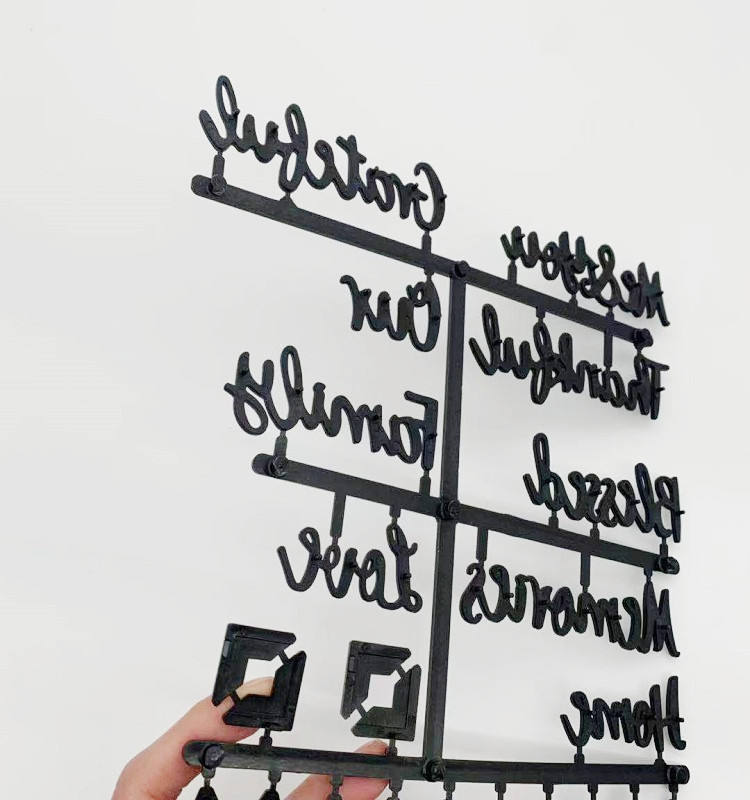 Grateful
Me & You
Our
Thankful
Family
Blessed
Love
Memories
Home